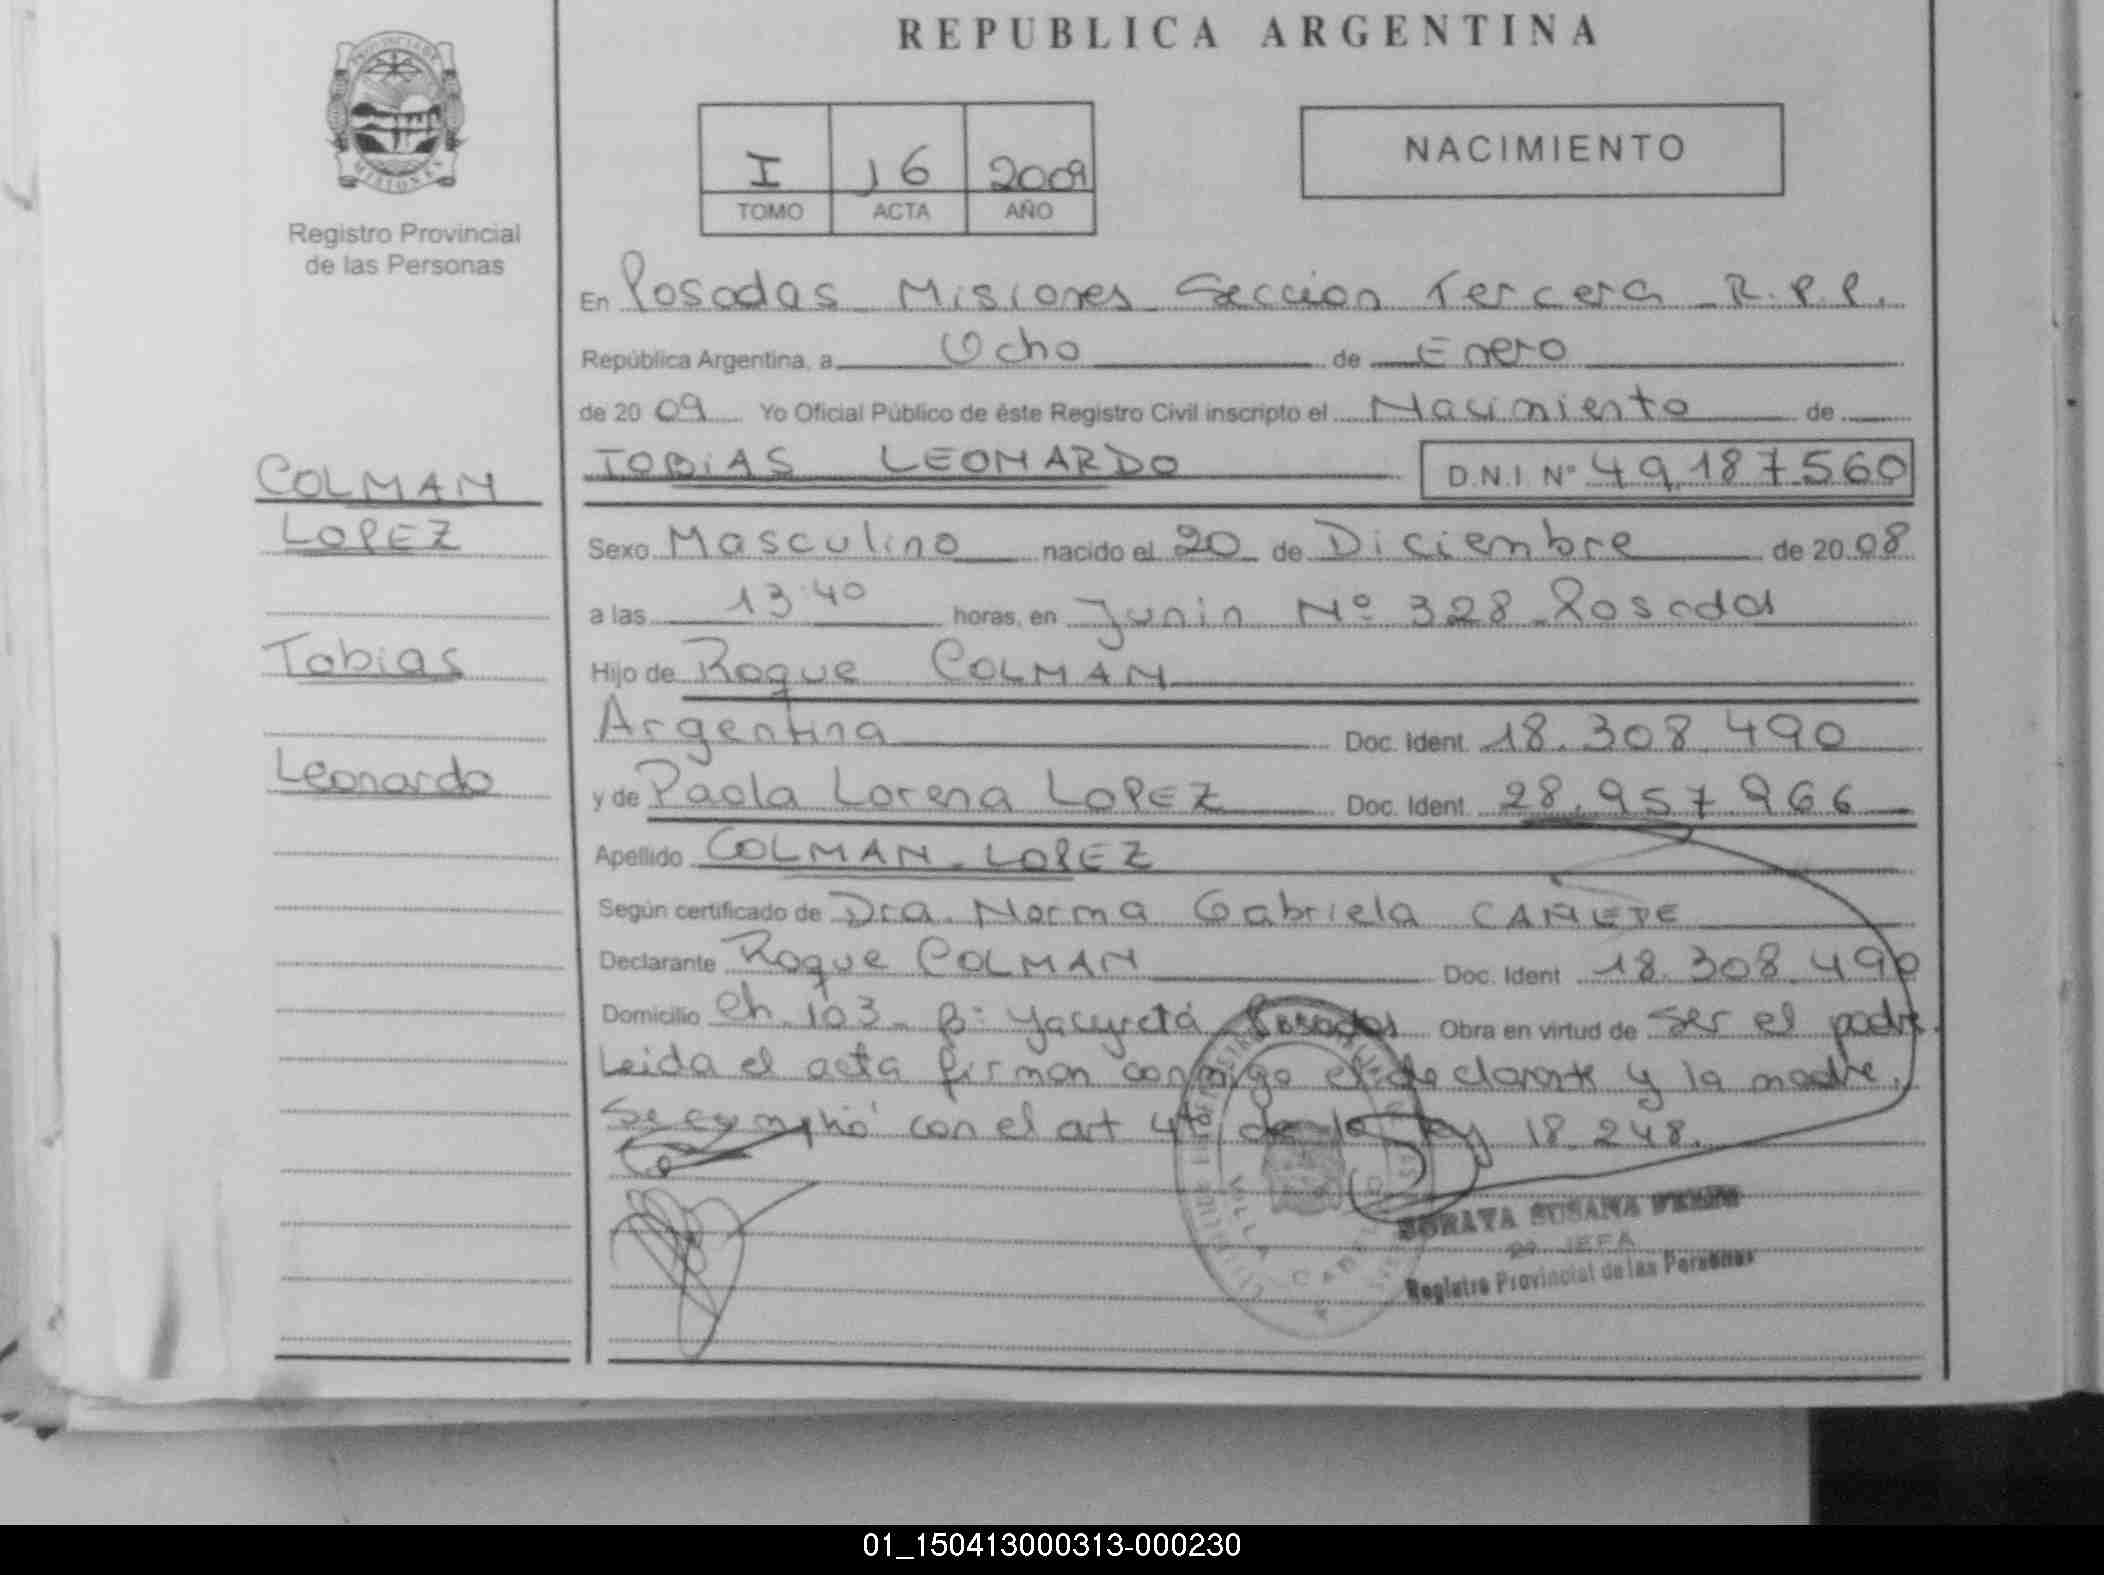 REPUBLICA ARGENTINA
PROVINCIA DE
MISIONES
Registro Provincial
de las Personas
I 16 2009
TOMO ACTA AÑO
NACIMIENTO
En Posadas Misiones Seccion Tercera R.P.P.
República Argentina, a Ocho de Enero
de 20 09 Yo Oficial Público de éste Registro Civil inscripto el Nacimiento de
TOBIAS LEONARDO D.N.I. Nº 49.187.560
COLMAN
LOPEZ
Tobias
Leonardo
Sexo Masculino nacido el 20 de Diciembre de 20 08
a las 13:40 horas, en Junin Nº 328 Posadas
Hijo de Roque COLMAN
Argentina Doc. Ident. 18.308.490
y de Paola Lorena LOPEZ Doc. Ident. 28.957.966
Apellido COLMAN LOPEZ
Según certificado de Dra. Norma Gabriela CAÑETE
Declarante Roque COLMAN Doc. Ident 18.308.490
Domicilio Ch. 103 - Bº Yacyretá Posadas Obra en virtud de ser el padre.
Leida el acta firman conmigo el declarante y la madre.
Se cumplió con el art 4to de la Ley 18.248.
VILLA CABELLO
SORAYA SUSANA
JEFA
Registro Provincial de las Personas
01_150413000313-000230